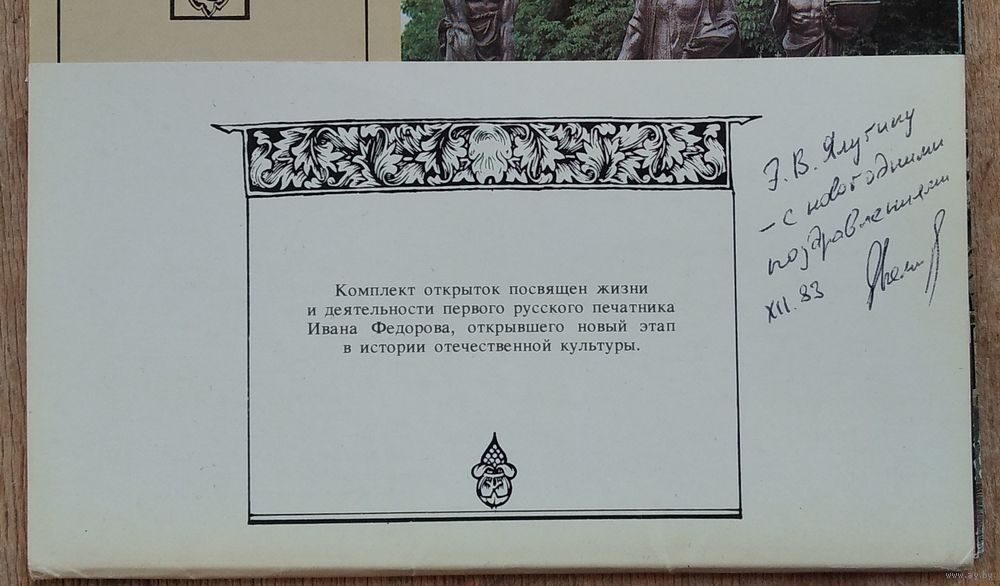 Комплект открыток посвящен жизни
и деятельности первого русского печатника
Ивана Федорова, открывшего новый этап
в истории отечественной культуры.
Э. В. Ялугину
– с новогодними
поздравлениями
XII. 83
www.ay.by